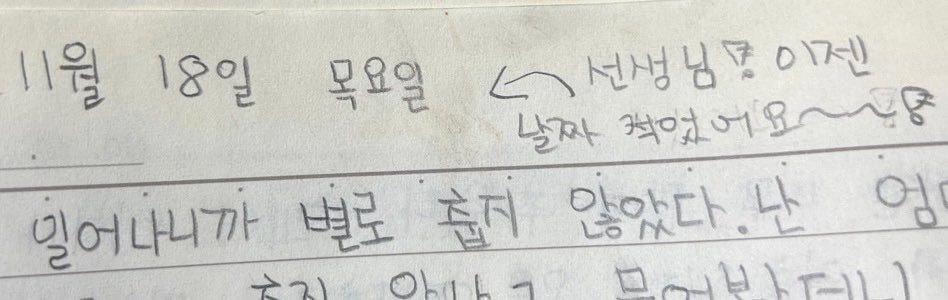 11월 18일 목요일 ← 선생님 이젠
날짜 적었어요~~
일어나니까 별로 춥지 않았다. 난 엄